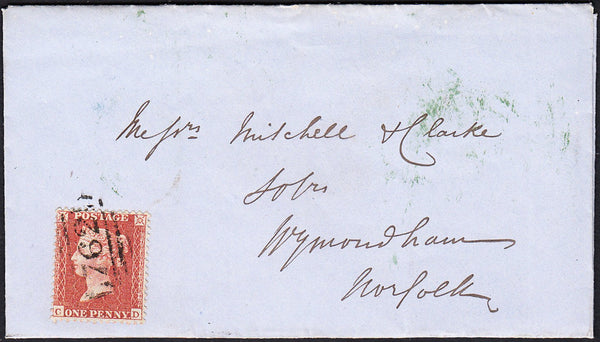 Messrs Mitchell & Clarke
Solrs
Wymondham
Norfolk
POSTAGE
C D
ONE PENNY